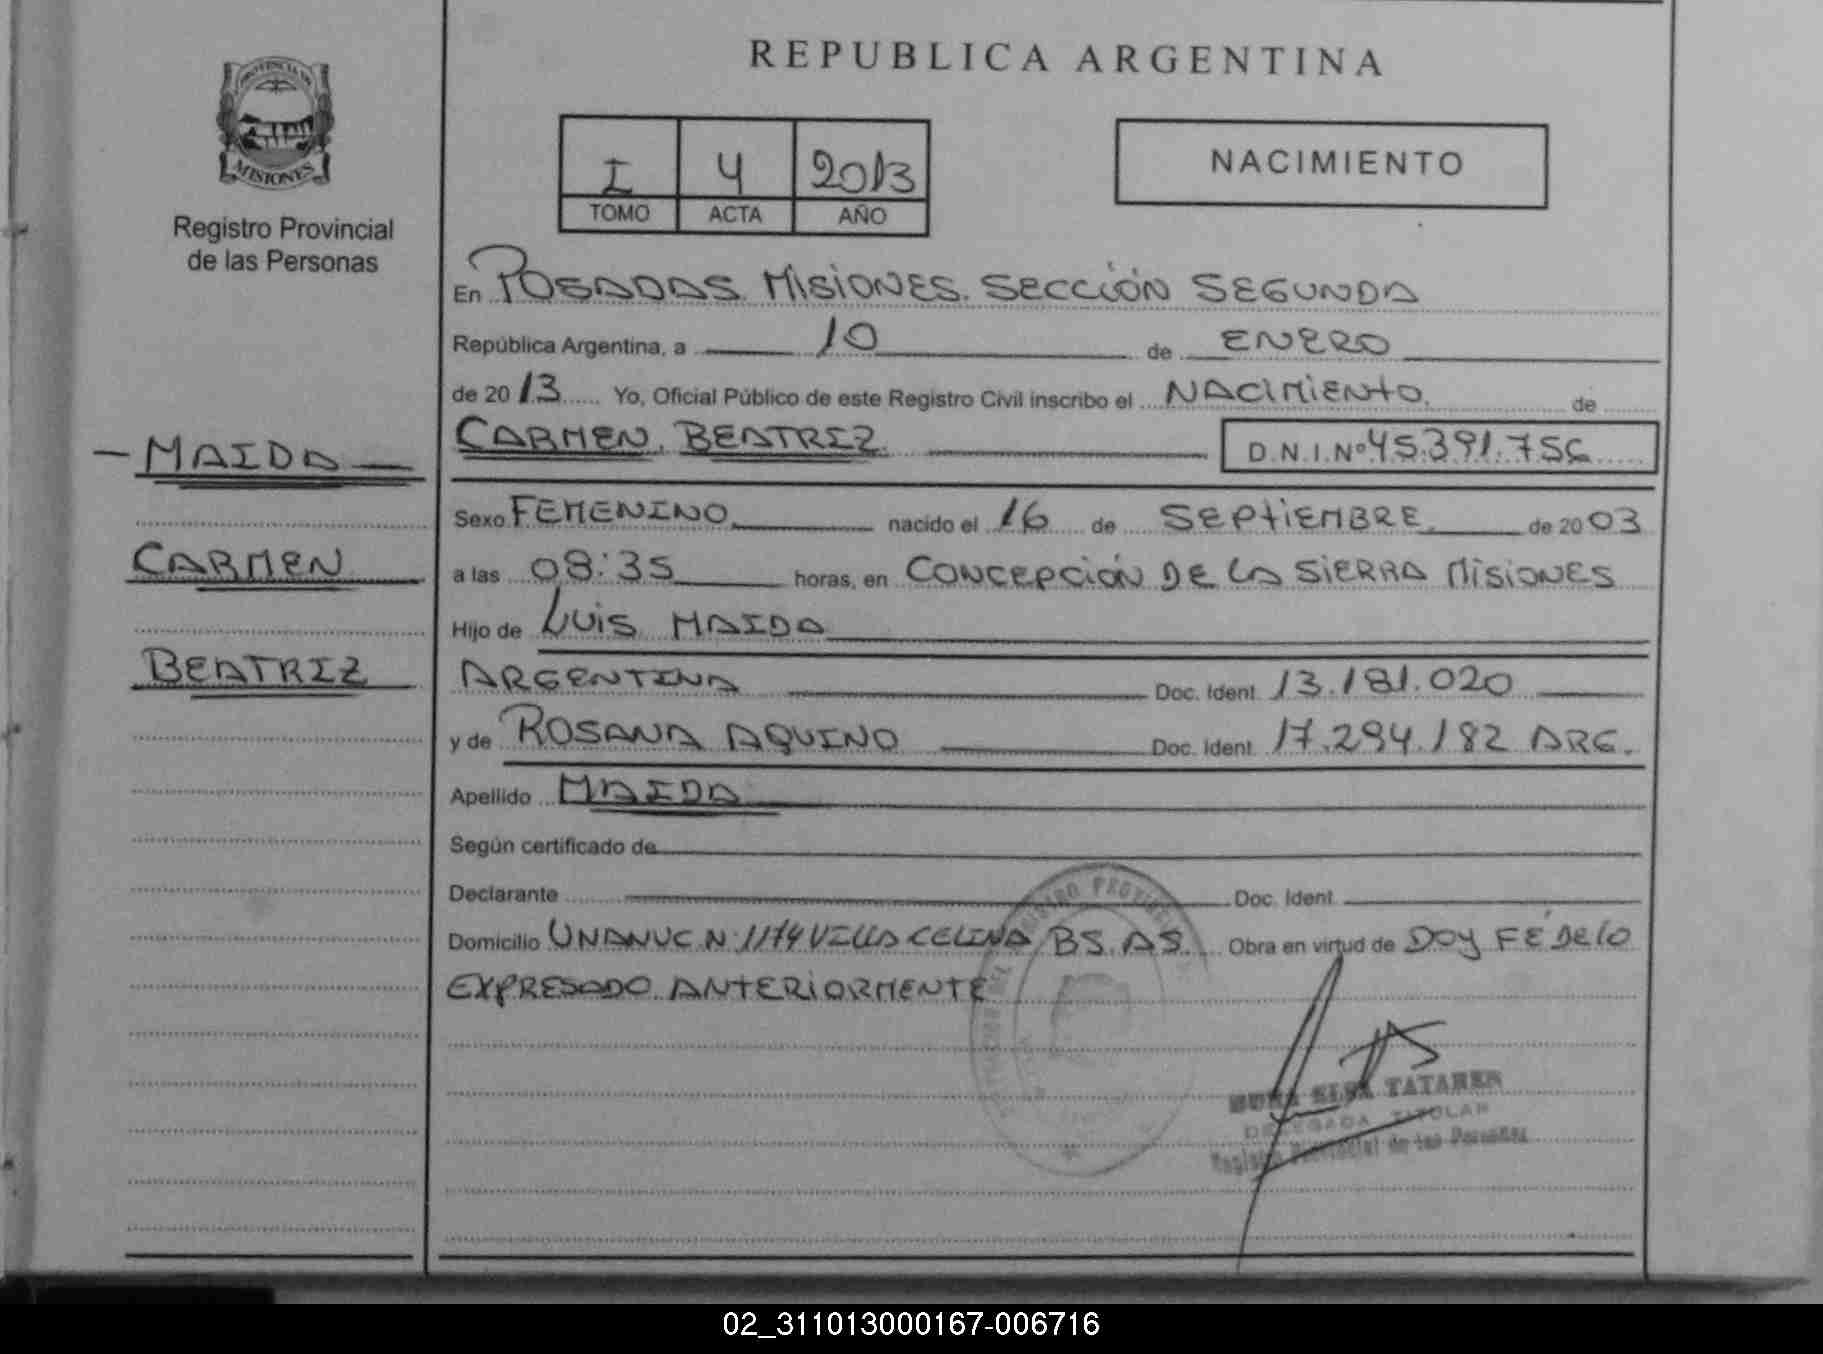 REPUBLICA ARGENTINA
PROVINCIA DE
MISIONES
Registro Provincial
de las Personas
I 4 2013
TOMO ACTA AÑO
NACIMIENTO
En POSADAS MISIONES. SECCIÓN SEGUNDA
República Argentina, a 10 de ENERO
de 2013 Yo, Oficial Público de este Registro Civil inscribo el NACIMIENTO. de
CARMEN. BEATRIZ D.N.I.Nº 45.391.756
- MAIDA
CARMEN
BEATRIZ
Sexo FEMENINO nacido el 16 de SEPTIEMBRE de 2003
a las 08:35 horas, en CONCEPCIÓN DE LA SIERRA MISIONES
Hijo de LUIS MAIDA
ARGENTINA Doc. Ident. 13.181.020
y de ROSANA AQUINO Doc. Ident. 17.294.182 ARG.
Apellido MAIDA
Según certificado de
Declarante Doc. Ident.
Domicilio UNANUC N. 1174 VILLA CELINA BS. AS. Obra en virtud de DOY FÉ DE LO
EXPRESADO ANTERIORMENTE
REGISTRO PROVINCIAL
ELSA TATAREN
DELEGADA TITULAR
Registro Provincial de las Personas
02_311013000167-006716